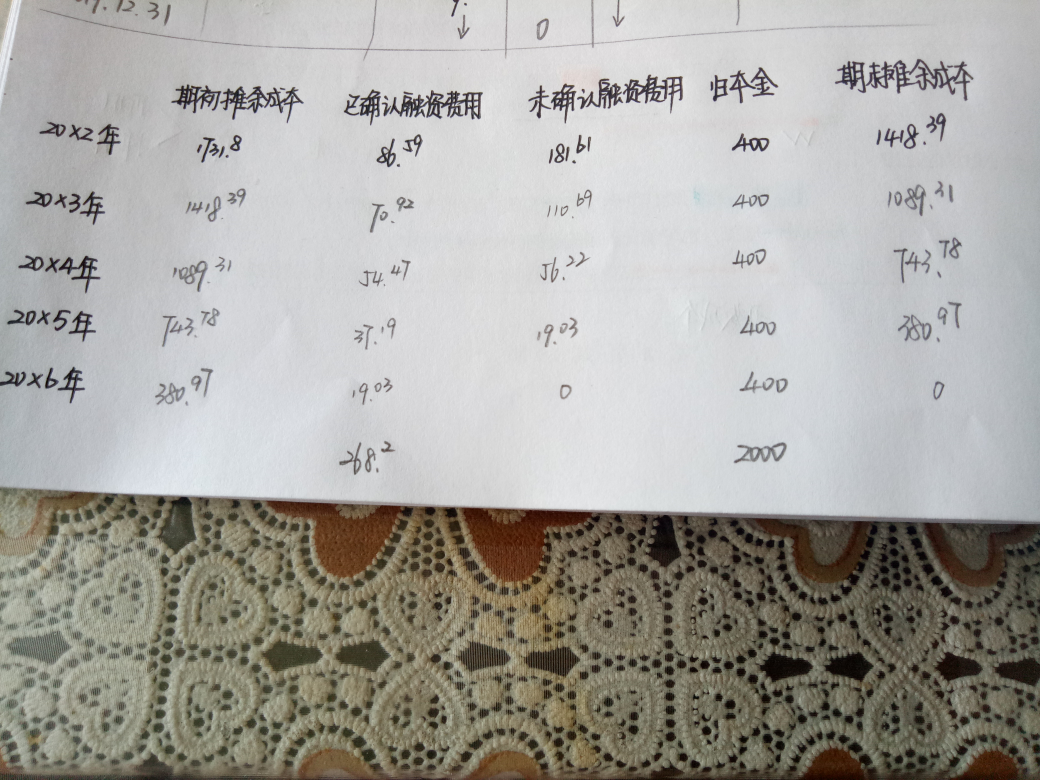 12.31
0
期初摊余成本 已确认融资费用 未确认融资费用 归本金 期末摊余成本
20×2年 1731.8 86.59 181.61 400 1418.39
20×3年 1418.39 70.92 110.69 400 1089.31
20×4年 1089.31 54.47 56.22 400 743.78
20×5年 743.78 37.19 19.03 400 380.97
20×6年 380.97 19.03 0 400 0
268.2 2000